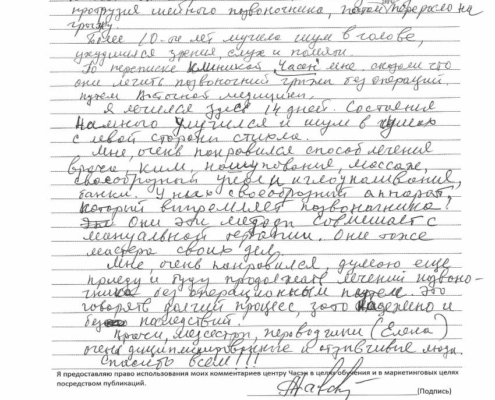 протрузия шейного позвоночника, перерыло на
грыжу.
Более 10-ти лет мучала шум в голове,
ухудшился зрения, слух и помяти.
По переписке клиникой Часен мне, сказали что
они лечить позвоночний грыжи без операций,
путем медицины.
Я лечился здесь 14 дней. Состояния
намного улучшился и шум в ушах
с левой стороны стихла.
Мне, очень понравился способ лечения
врача Ким, массаж,
своеобразный и иглоукалывания,
банки. У них своеобразный аппарат,
который выпрямляет позвоночника!
Они эти методы совмешает с
мануальной терапии. Они тоже
мастера своих дел.
Мне, очень понравился, думаю еще
приеду и буду продолжать лечений позвоно-
чника без операционным путем. Это
говорять долгий процесс, зато надежно и
без последствий.
Врачи, медсестры, переводчики (Елена)
очень дисциплинированные и отзывчивые люди.
Спасибо всем!!!
Я предоставляю право использования моих комментариев центру Часэн в целях обучения и в маркетинговых целях
посредством публикаций.
(Подпись)